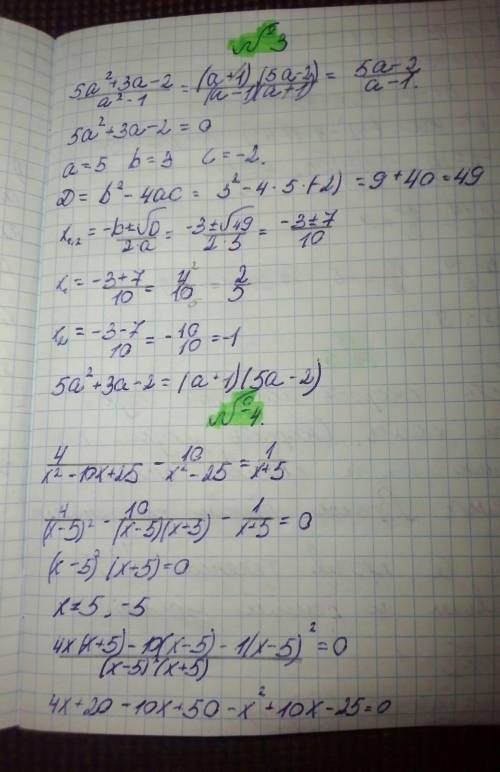 №3
(5a²+3a-2)/(a²-1) = ((a+1)(5a-2))/((a-1)(a+1)) = (5a-2)/(a-1).
5a²+3a-2=0
a=5 b=3 c=-2.
D= b²-4ac = 3²-4·5·(-2) =9+40=49
x₁,₂ = (-b±√D)/(2·a) = (-3±√49)/(2·5) = (-3±7)/10
x₁ = (-3+7)/10 = 4/10 = 2/5
x₂ = (-3-7)/10 = -10/10 =-1
5a²+3a-2=(a+1)(5a-2)
№4.
4/(x²-10x+25) - 10/(x²-25) = 1/(x+5)
4/(x-5)² - 10/((x-5)(x+5)) - 1/(x+5) = 0
(x-5)² (x+5)=0
x≠5, -5
(4x(x+5)-10(x-5)-1(x-5)²)/((x-5)²(x+5)) =0
4x+20-10x+50-x²+10x-25=0